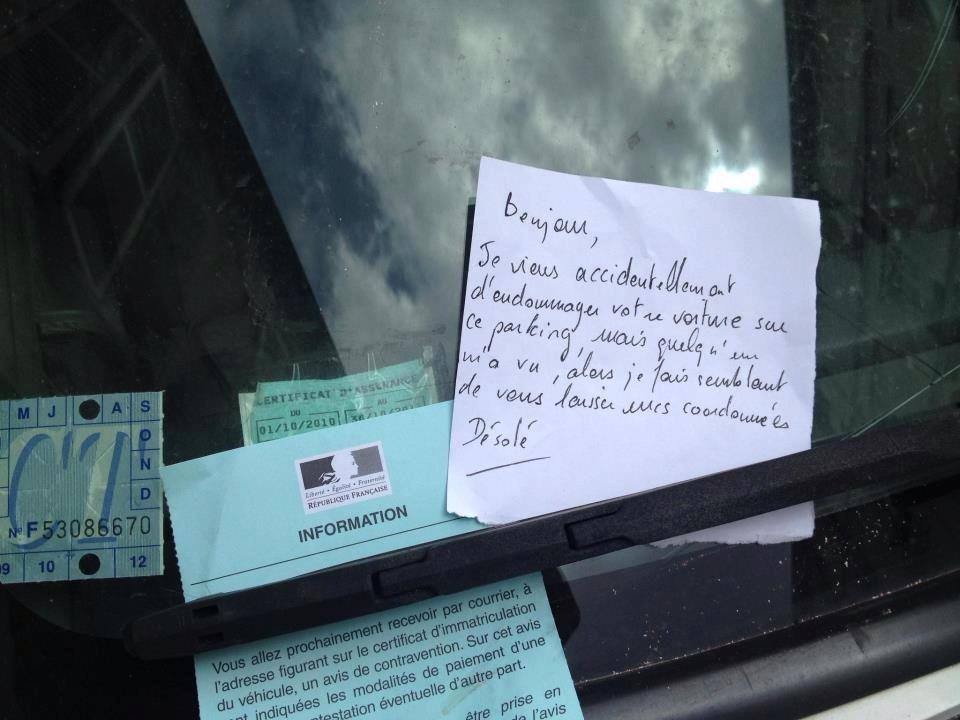 Bonjour,
Je viens accidentellement
d'endommager votre voiture sur
ce parking, mais quelqu'un
m'a vu, alors je fais semblant
de vous laisser mes coordonnées
Désolé
CERTIFICAT D'ASSURANCE
DU AU
01/10/2010
M J A S
O
N
D
CT
N° F53086670
09 10 12
Liberté • Égalité • Fraternité
RÉPUBLIQUE FRANÇAISE
INFORMATION
Vous allez prochainement recevoir par courrier, à
l'adresse figurant sur le certificat d'immatriculation
du véhicule, un avis de contravention. Sur cet avis
indiquées les modalités de paiement d'une
éventuelle d'autre part.
être prise en
de l'avis